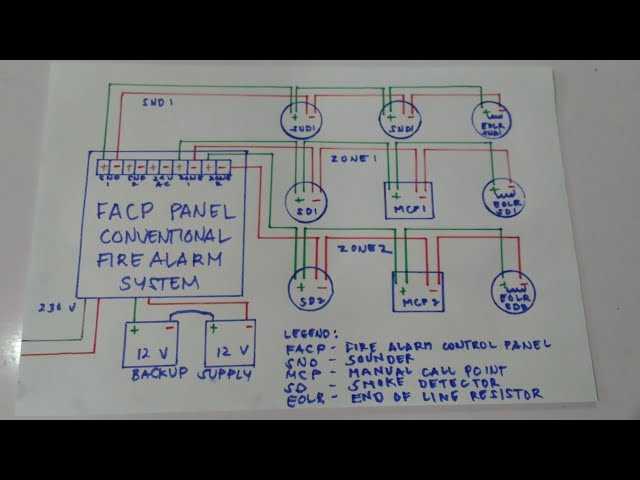 SND1
+ - + - + -
SND1 SND1 EOLR SND1
ZONE 1
+ - + - + - + - + -
SND 1 SND 2 24V AC ZONE 1 ZONE 2
+ - + - + -
SD1 MCP1 EOLR SD1
FACP PANEL
CONVENTIONAL
FIRE ALARM
SYSTEM
ZONE 2
+ - + - + -
SD2 MCP2 EOLR SD2
230 V
+ - + -
12 V 12 V
BACKUP SUPPLY
LEGEND:
FACP - FIRE ALARM CONTROL PANEL
SND - SOUNDER
MCP - MANUAL CALL POINT
SD - SMOKE DETECTOR
EOLR - END OF LINE RESISTOR